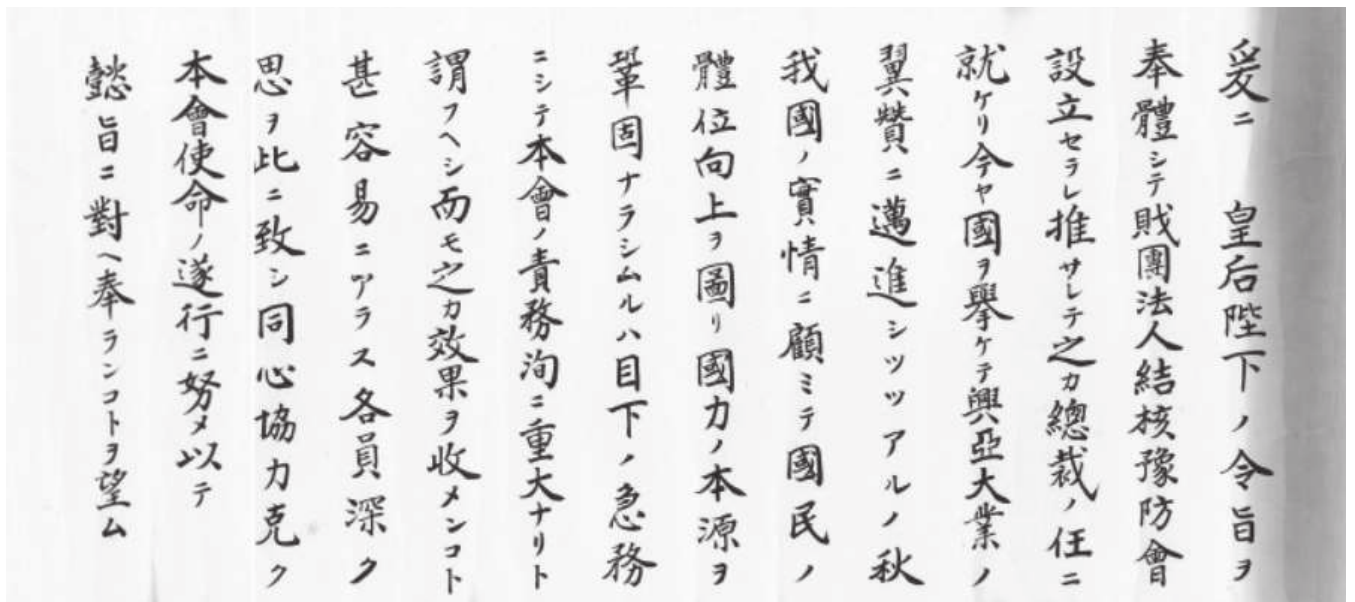 爰ニ 皇后陛下ノ令旨ヲ
奉體シテ財團法人結核豫防會
設立セラレ推サレテ之カ總裁ノ任ニ
就ケリ今ヤ國ヲ擧ケテ興亞大業ノ
翼贊ニ邁進シツツアルノ秋
我國ノ實情ニ顧ミテ國民ノ
體位向上ヲ圖リ國力ノ本源ヲ
鞏固ナラシムルハ目下ノ急務
ニシテ本會ノ責務洵ニ重大ナリト
謂フヘシ而モ之カ效果ヲ收メンコト
甚容易ニアラス各員深ク
思ヲ此ニ致シ同心協力克ク
本會使命ノ遂行ニ努メ以テ
懿旨ニ對ヘ奉ランコトヲ望ム